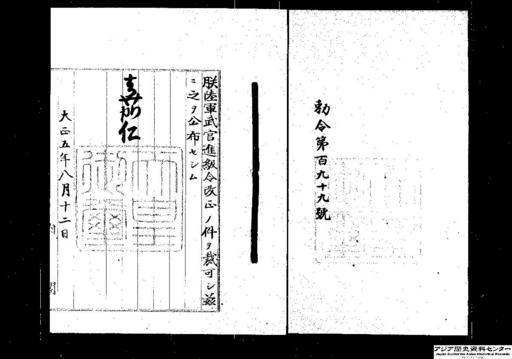 勅令第百九十九號
朕陸軍武官進級令改正ノ件ヲ裁可シ茲
ニ之ヲ公布セシム
嘉仁
天皇御璽
大正五年八月十二日
内閣
アジア歴史資料センター
Japan Center for Asian Historical Records